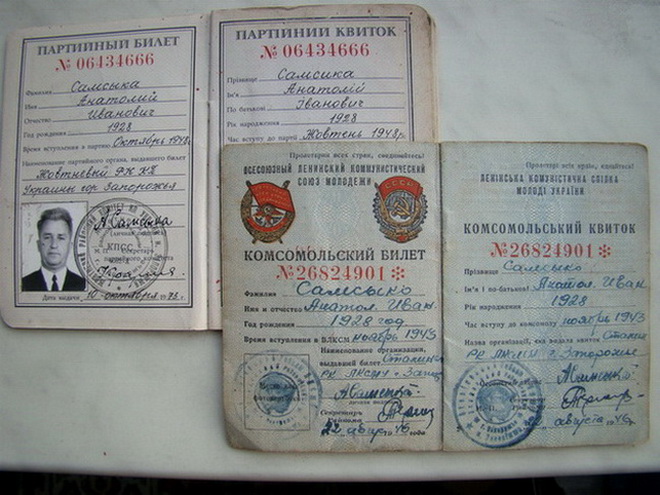 ПАРТИЙНЫЙ БИЛЕТ
№ 06434666
Фамилия Самсыка
Имя Анатолий
Отчество Иванович
Год рождения 1928
Время вступления в партию Октябрь 1948 г
Наименование партийного органа, выдавшего билет
Жовтневый РК КП
Украины гор Запорожья
(личная подпись)
М. П. Секретарь
партийного комитета
КПСС
Дата выдачи 10 октября 1973 г.
ПАРТІЙНИЙ КВИТОК
№ 06434666
Прізвище Самсика
Ім'я Анатолій
По батькові Іванович
Рік народження 1928
Час вступу до партії Жовтень 1948 р.
Пролетарии всех стран, соединяйтесь!
ВСЕСОЮЗНЫЙ ЛЕНИНСКИЙ КОММУНИСТИЧЕСКИЙ
СОЮЗ МОЛОДЕЖИ
СССР
КОМСОМОЛЬСКИЙ БИЛЕТ
№26824901
Фамилия Самсыко
Имя и отчество Анатол. Иван.
Год рождения 1928 год
Время вступления в ВЛКСМ ноябрь 1943
Наименование организации,
выдавшей билет Сталинский
РК ЛКСМУ г. Запор
личная подпись
Секретарь
Райкома
22 август 1946 года
Пролетарі всіх країн, єднайтеся!
ЛЕНІНСЬКА КОМУНІСТИЧНА СПІЛКА
МОЛОДІ УКРАЇНИ
КОМСОМОЛЬСЬКИЙ КВИТОК
№26824901
Прізвище Самсыко
Ім'я і по-батькові Анатол. Иван.
Рік народження 1928
Час вступу до комсомолу ноябрь 1943
Назва організації, яка видала квиток Сталин
РК ЛКСМУ г. Запорожье
М. П.
22 августа 1946 г.